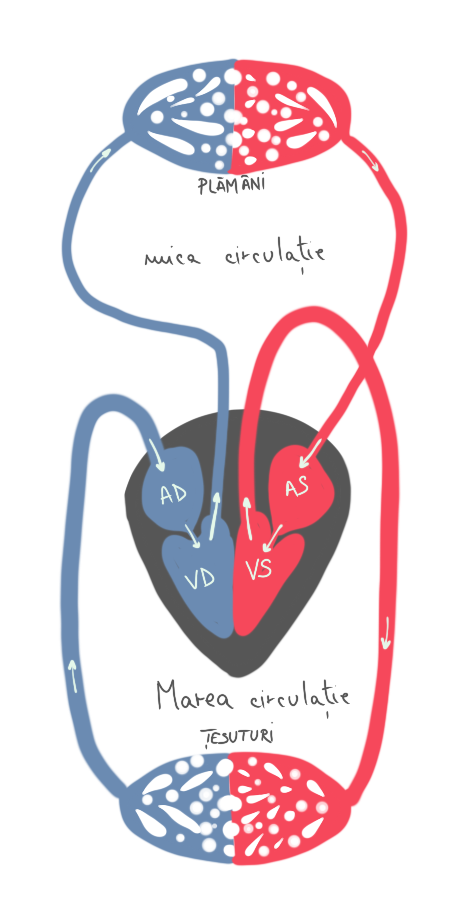 PLĂMÂNI
mica circulație
AD
AS
VD
VS
Marea circulație
ȚESUTURI